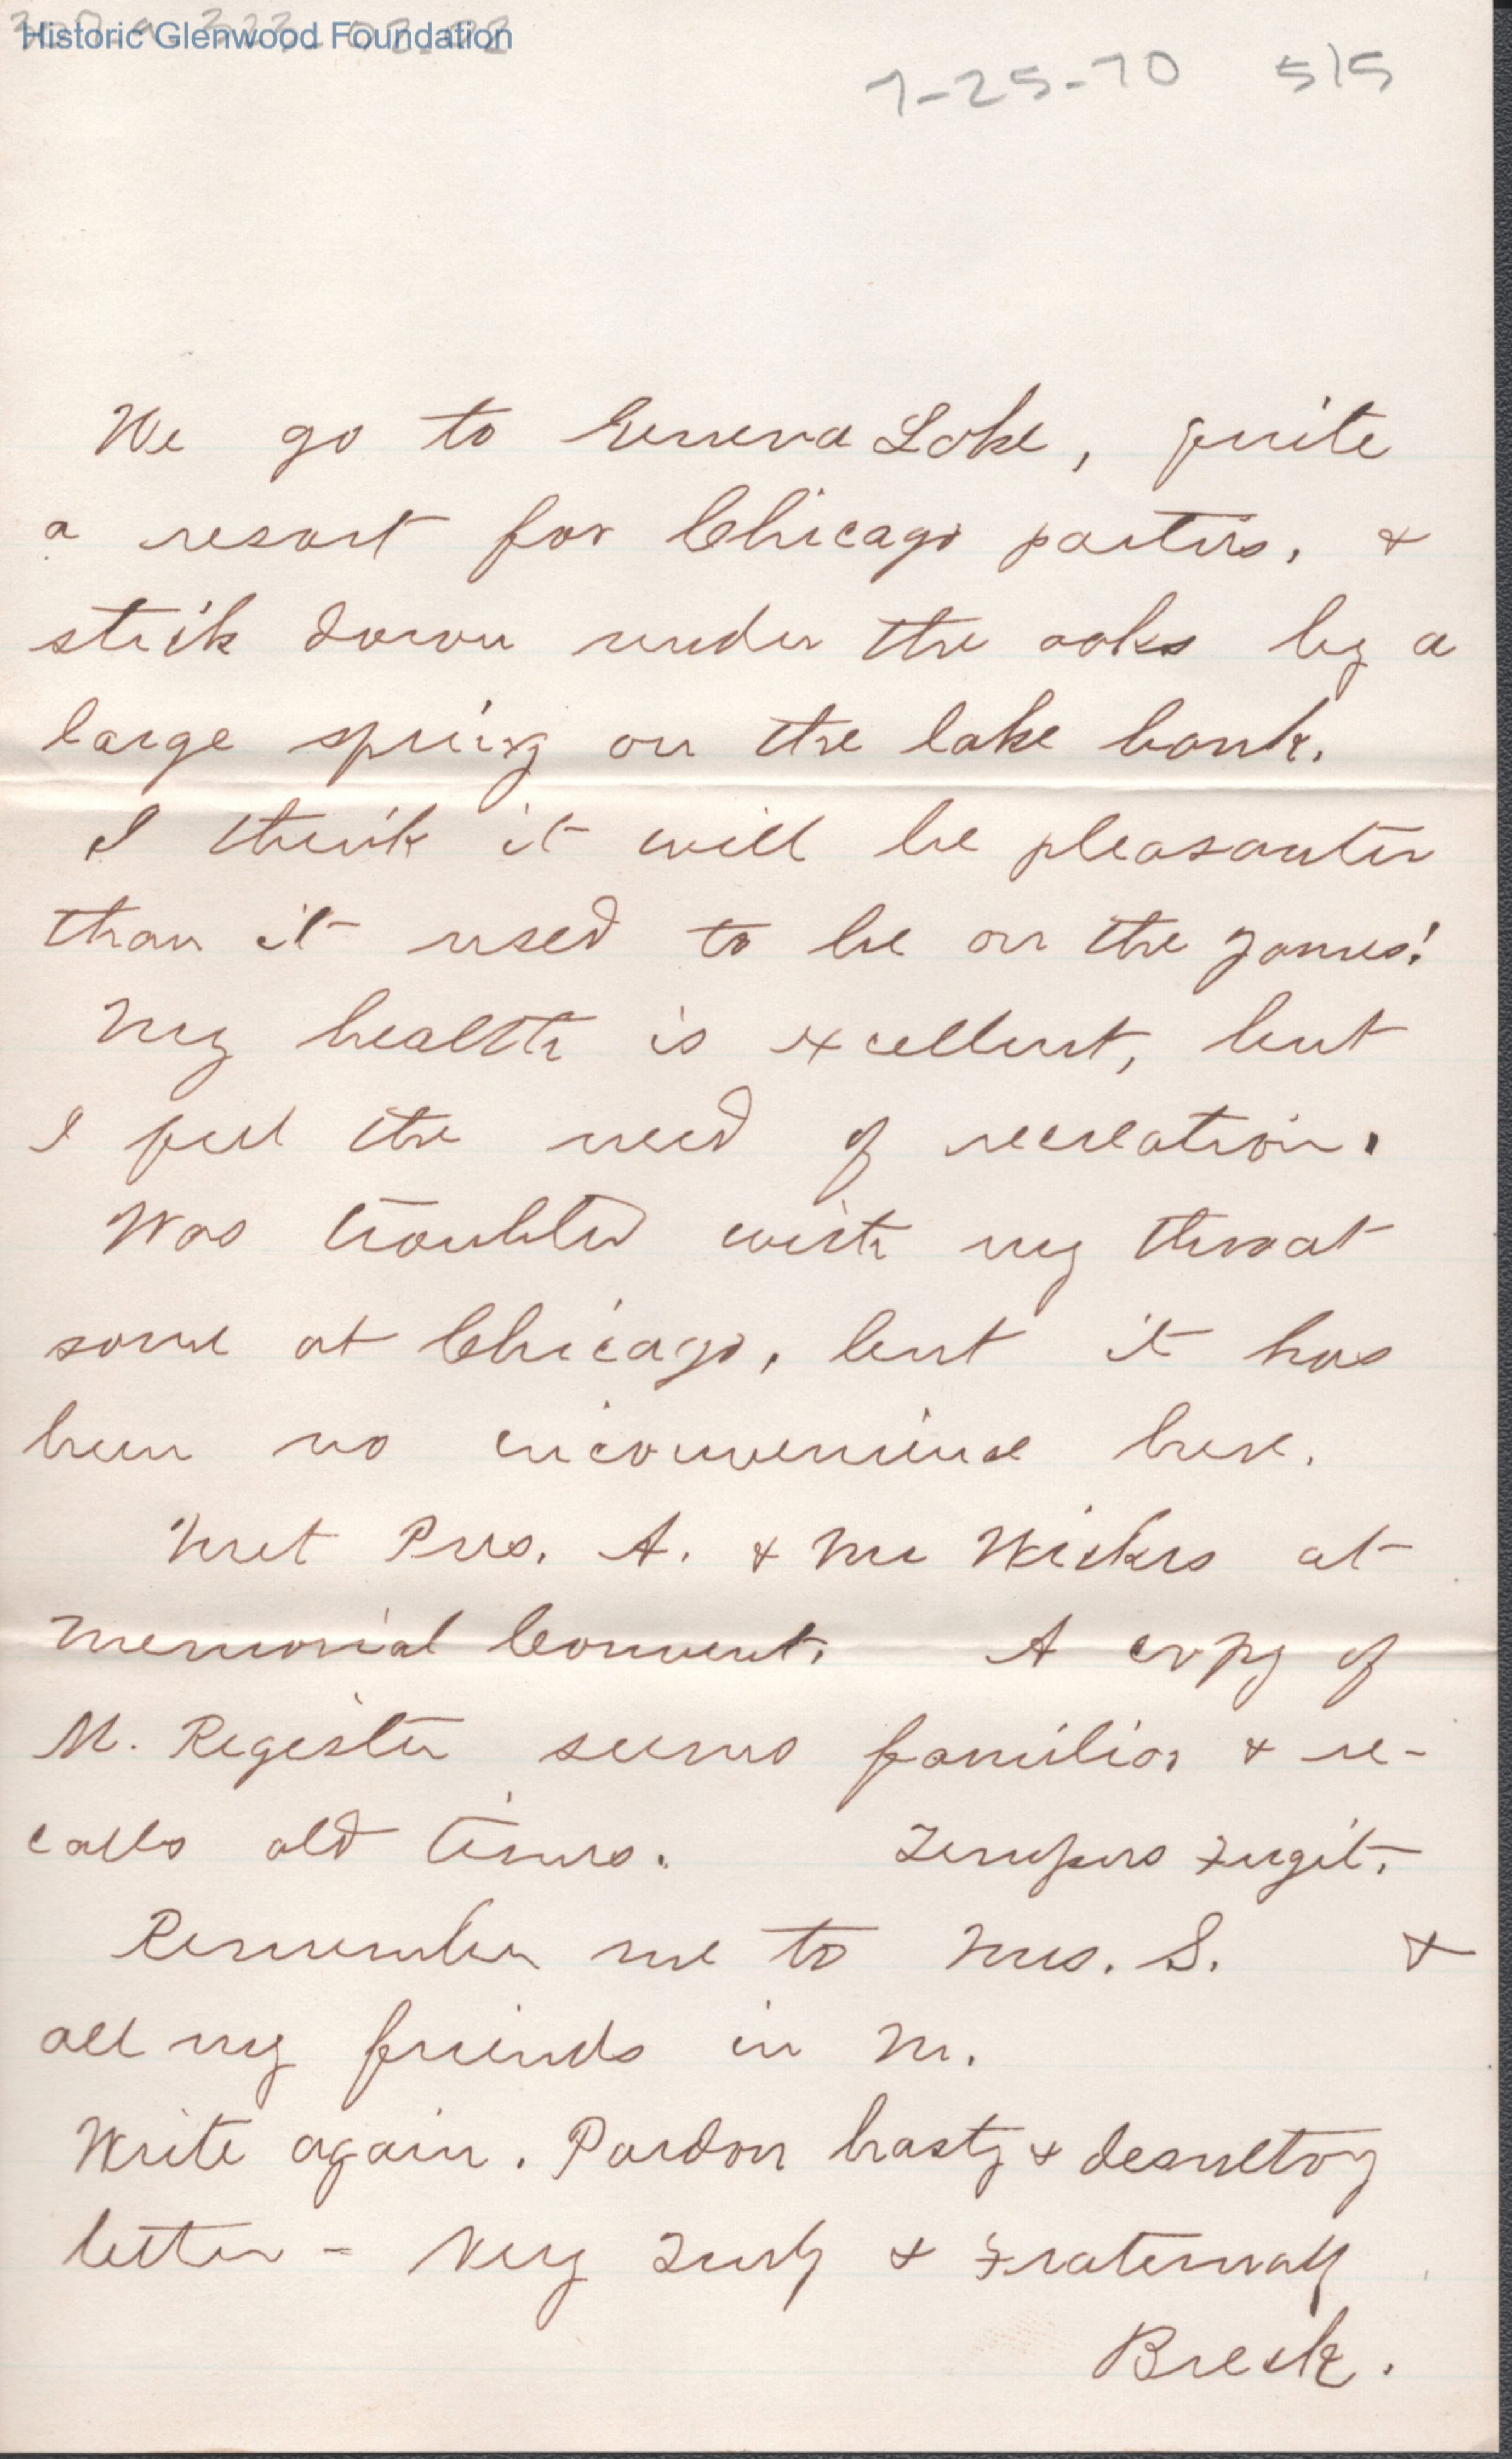 Historic Glenwood Foundation
7-25-70 515
We go to Geneva Lake, quite
a resort for Chicago parties, &
stick down under the oaks by a
large spring on the lake bank.
I think it will be pleasanter
than it used to be on the James!
My health is excellent, but
I feel the need of recreation.
Was troubled with my throat
some at Chicago, but it has
been no inconvenience here.
Met Pres. A. & Mr Wickes at
Memorial Convent. A copy of
M. Register seems familiar & re-
calls old times. Tempus Fugit.
Remember me to Mrs. S. &
all my friends in M.
Write again. Pardon hasty & desultory
letter - Very Truly & Fraternally
Breck.